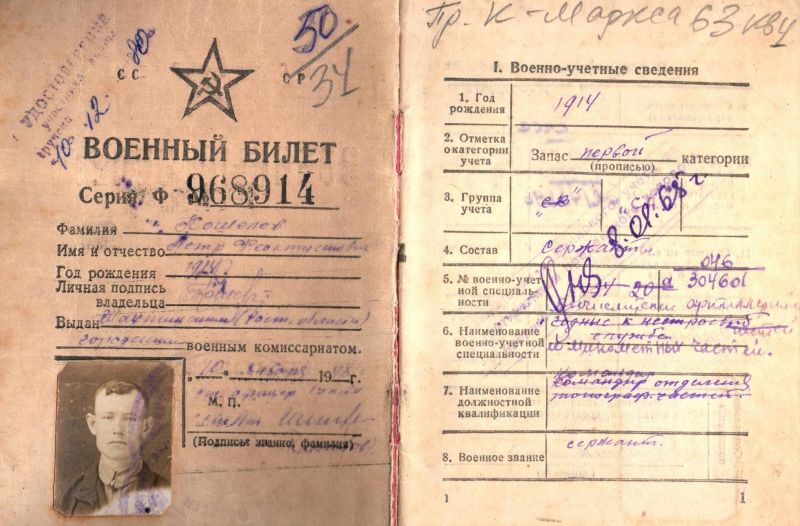 УДОСТОВЕРЕНИЕ
10. 12. 80
СС СР
50/34
ВОЕННЫЙ БИЛЕТ
Серия Ф № 968914
Фамилия Кошелев
Имя и отчество Петр Феоктистович
Год рождения 1914
Личная подпись
владельца
Выдан
городским военным комиссариатом.
"10" января 1948 г.
М. П.
(Подпись звание, фамилия)
Пр. К-Маркса 63 кв 4
I. Военно-учетные сведения
1. Год
рождения 1914
2. Отметка
о категории
учета Запас первой категории
(прописью)
3. Группа
учета
8.01.68 г.
4. Состав сержанты
5. № военно-учет-
ной специаль-
ности 20 а 304601
046
6. Наименование
военно-учетной
специальности
годные к нестроевой
службе
7. Наименование
должностной
квалификации
командир
командир отделения
8. Военное звание сержант.
1 1